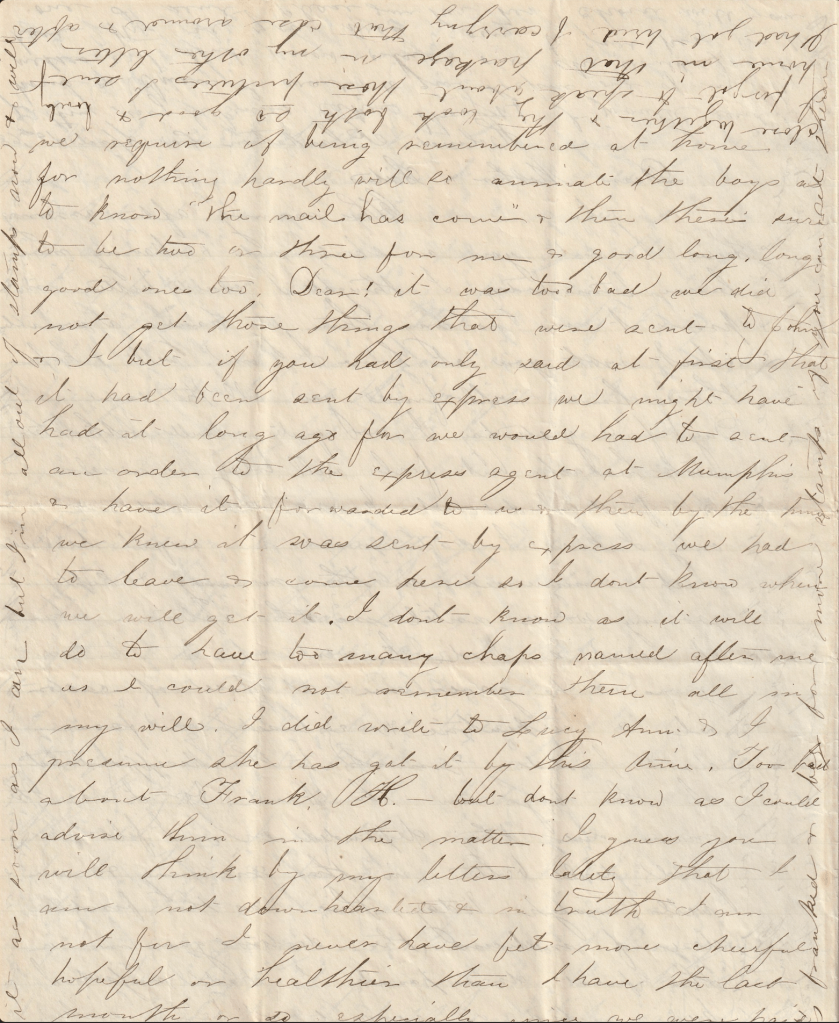 we require of being remembered at home
for nothing hardly will so animate the boys as
to know "the mail has come" & then there's sure
to be two or three for me & good long, long
good ones too. Dear! it was too bad we did
not get those things that were sent to John
& I but if you had only said at first that
it had been sent by express we might have
had it long ago for we would had to sent
an order to the express agent at Memphis
& have it forwarded to us & then by the time
we knew it was sent by express we had
to leave & come here so I dont know when
we will get it. I dont know as it will
do to have too many chaps named after me
as I could not remember them all in
my will. I did write to Lucy Ann & I
presume she has got it by this time. Too bad
about Frank H. — but dont know as I could
advise them in the matter. I guess you
will think by my letters lately that I
am not downhearted & in truth I am
not for I never have felt more cheerful
hopeful or healthier than I have the last
month or so especially since we were
close together & they look both as good &
forgot to speak about those pictures I sent
home in that package in my other letter
I had got tired of carrying that case around & after
as soon as I can but I'm all out of stamps now & will
franked & for more stamps if you can get them